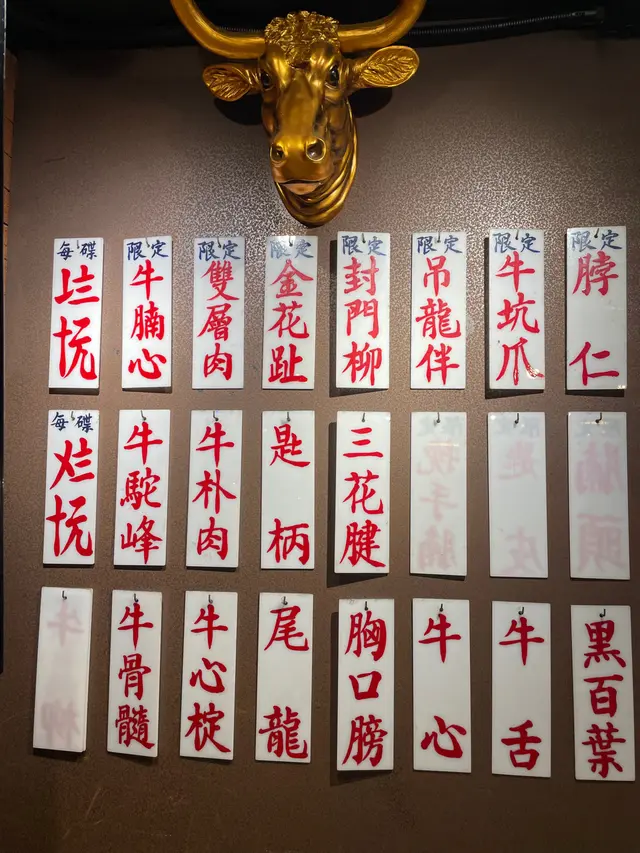 每碟
限定
牛腩心
限定
雙層肉
限定
金花趾
限定
封門柳
限定
吊龍伴
限定
牛坑爪
限定
脖仁
每碟
牛駝峰
牛朴肉
匙柄
三花腱
牛骨髓
牛心椗
尾龍
胸口膀
牛心
牛舌
黑百葉